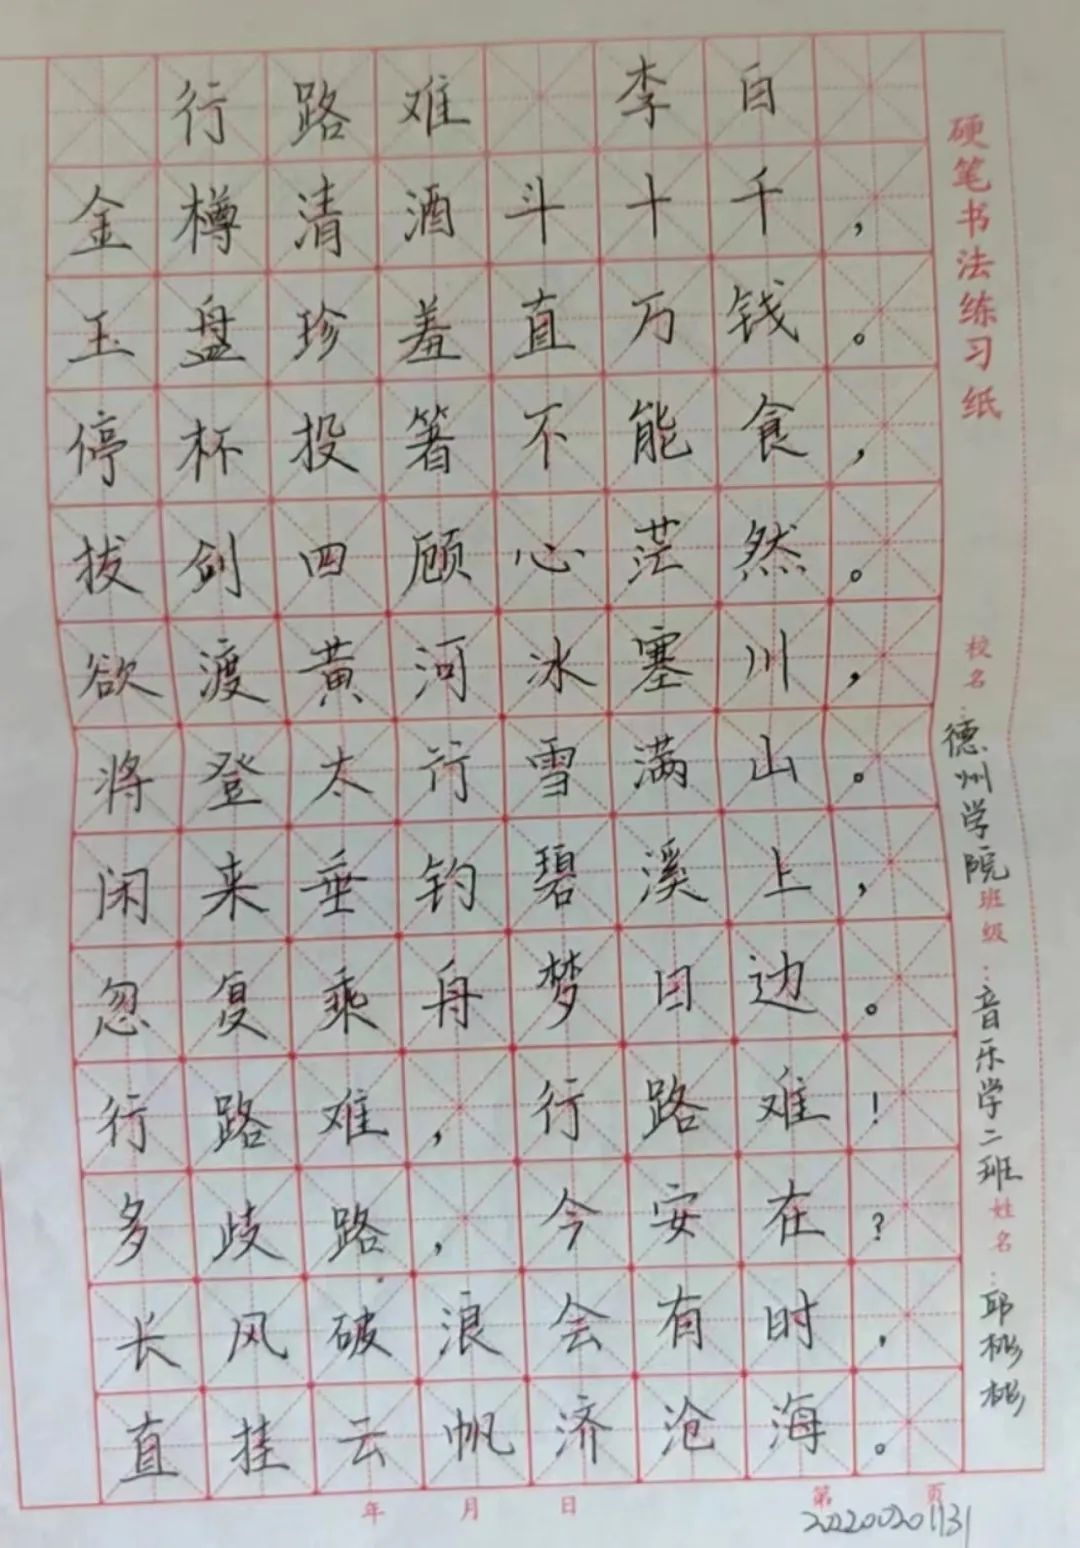 行路难 李白
金樽清酒斗十千，
玉盘珍羞直万钱。
停杯投箸不能食，
拔剑四顾心茫然。
欲渡黄河冰塞川，
将登太行雪满山。
闲来垂钓碧溪上，
忽复乘舟梦日边。
行路难，行路难！
多歧路，今安在？
长风破浪会有时，
直挂云帆济沧海。
硬笔书法练习纸
校名：德州学院班级：音乐学二班姓名：邱彬彬
年 月 日 第 页
202200201131